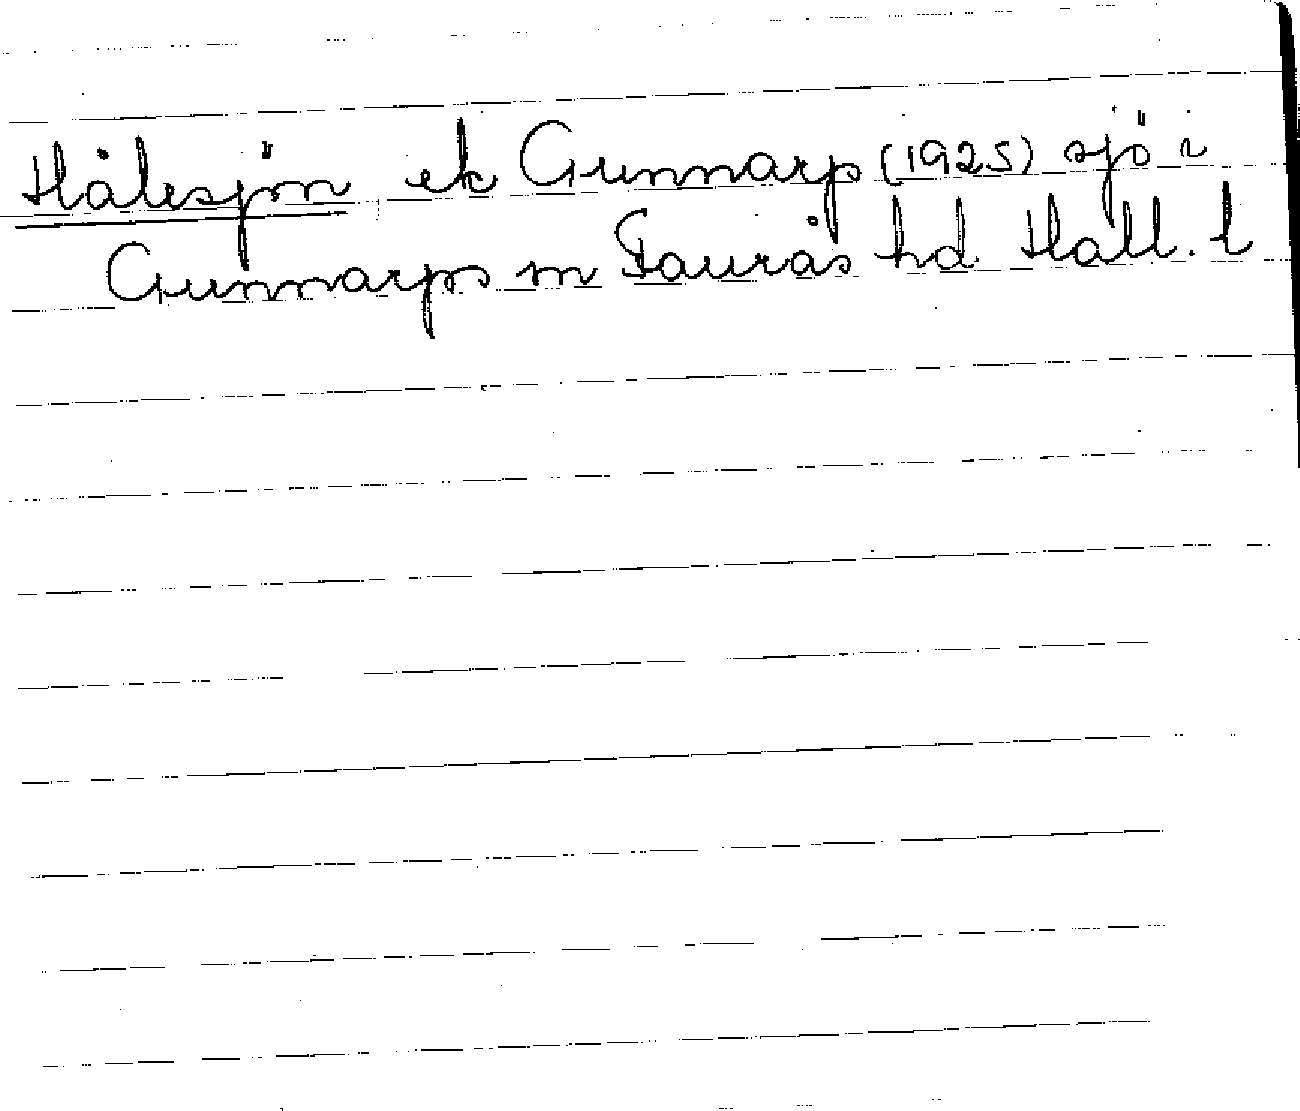 Hålesjön ek Gunnarp (1925) sjö i
Gunnarps sn Faurås hd Hall. l